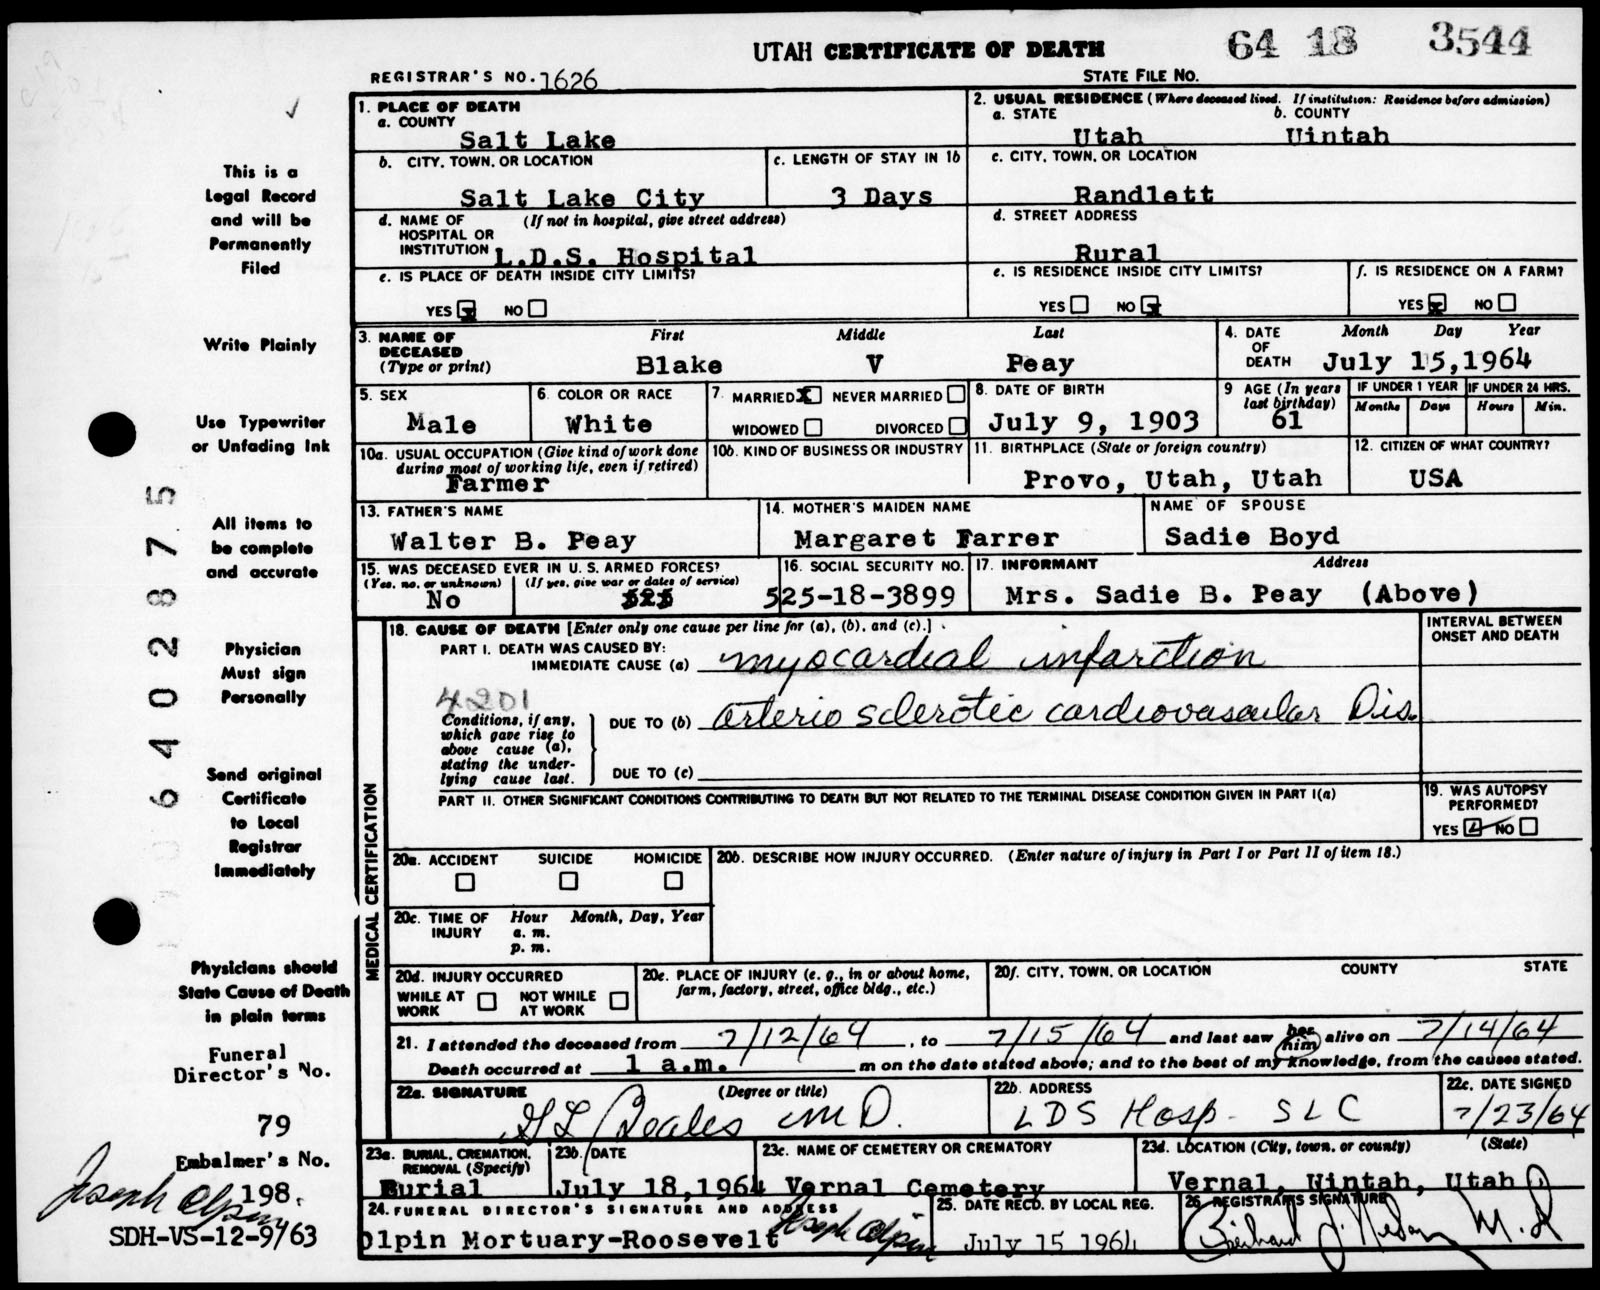 UTAH CERTIFICATE OF DEATH 64 18 3544
REGISTRAR'S NO. 1626 STATE FILE NO.
1. PLACE OF DEATH
a. COUNTY
Salt Lake
2. USUAL RESIDENCE (Where deceased lived. If institution: Residence before admission)
a. STATE b. COUNTY
Utah Uintah
b. CITY, TOWN, OR LOCATION
Salt Lake City
c. LENGTH OF STAY IN 1b
3 Days
c. CITY, TOWN, OR LOCATION
Randlett
d. NAME OF (If not in hospital, give street address)
HOSPITAL OR
INSTITUTION L.D.S. Hospital
d. STREET ADDRESS
Rural
e. IS PLACE OF DEATH INSIDE CITY LIMITS?
YES x NO
e. IS RESIDENCE INSIDE CITY LIMITS?
YES NO x
f. IS RESIDENCE ON A FARM?
YES x NO
3. NAME OF DECEASED (Type or print)
First Middle Last
Blake V Peay
4. DATE OF DEATH Month Day Year
July 15, 1964
5. SEX
Male
6. COLOR OR RACE
White
7. MARRIED X NEVER MARRIED
WIDOWED DIVORCED
8. DATE OF BIRTH
July 9, 1903
9 AGE (In years last birthday)
61
IF UNDER 1 YEAR IF UNDER 24 HRS.
Months Days Hours Min.
10a. USUAL OCCUPATION (Give kind of work done
during most of working life, even if retired)
Farmer
10b. KIND OF BUSINESS OR INDUSTRY
11. BIRTHPLACE (State or foreign country)
Provo, Utah, Utah
12. CITIZEN OF WHAT COUNTRY?
USA
13. FATHER'S NAME
Walter B. Peay
14. MOTHER'S MAIDEN NAME
Margaret Farrer
NAME OF SPOUSE
Sadie Boyd
15. WAS DECEASED EVER IN U.S. ARMED FORCES?
(Yes, no, or unknown) (If yes, give war or dates of service)
No
16. SOCIAL SECURITY NO.
525-18-3899
17. INFORMANT Address
Mrs. Sadie B. Peay (Above)
MEDICAL CERTIFICATION
18. CAUSE OF DEATH [Enter only one cause per line for (a), (b), and (c).]
INTERVAL BETWEEN
ONSET AND DEATH
PART I. DEATH WAS CAUSED BY:
IMMEDIATE CAUSE (a) myocardial infarction
4201
Conditions, if any,
which gave rise to
above cause (a),
stating the under-
lying cause last.
DUE TO (b) arterio sclerotic cardiovascular Dis.
DUE TO (c)
PART II. OTHER SIGNIFICANT CONDITIONS CONTRIBUTING TO DEATH BUT NOT RELATED TO THE TERMINAL DISEASE CONDITION GIVEN IN PART I(a)
19. WAS AUTOPSY
PERFORMED?
YES NO
20a. ACCIDENT SUICIDE HOMICIDE
20b. DESCRIBE HOW INJURY OCCURRED. (Enter nature of injury in Part I or Part II of item 18.)
20c. TIME OF INJURY Hour Month, Day, Year
a. m.
p. m.
20d. INJURY OCCURRED
WHILE AT WORK NOT WHILE AT WORK
20e. PLACE OF INJURY (e. g., in or about home,
farm, factory, street, office bldg., etc.)
20f. CITY, TOWN, OR LOCATION COUNTY STATE
21. I attended the deceased from 7/12/64, to 7/15/64 and last saw her him alive on 7/14/64
Death occurred at 1 a.m. m on the date stated above; and to the best of my knowledge, from the causes stated.
22a. SIGNATURE (Degree or title)
Beales MD.
22b. ADDRESS
LDS Hosp- SLC
22c. DATE SIGNED
7/23/64
23a. BURIAL, CREMATION,
REMOVAL (Specify)
Burial
23b. DATE
July 18, 1964
23c. NAME OF CEMETERY OR CREMATORY
Vernal Cemetery
23d. LOCATION (City, town, or county) (State)
Vernal, Uintah, Utah
24. FUNERAL DIRECTOR'S SIGNATURE AND ADDRESS
Olpin Mortuary-Roosevelt Joseph Olpin
25. DATE RECD. BY LOCAL REG.
July 15 1964
26 REGISTRAR'S SIGNATURE
M.D
This is a
Legal Record
and will be
Permanently
Filed
Write Plainly
Use Typewriter
or Unfading Ink
All items to
be complete
and accurate
Physician
Must sign
Personally
Send original
Certificate
to Local
Registrar
Immediately
Physicians should
State Cause of Death
in plain terms
Funeral
Director's No.
79
Embalmer's No.
198.
Joseph Olpin
SDH-VS-12-9/63
06402875